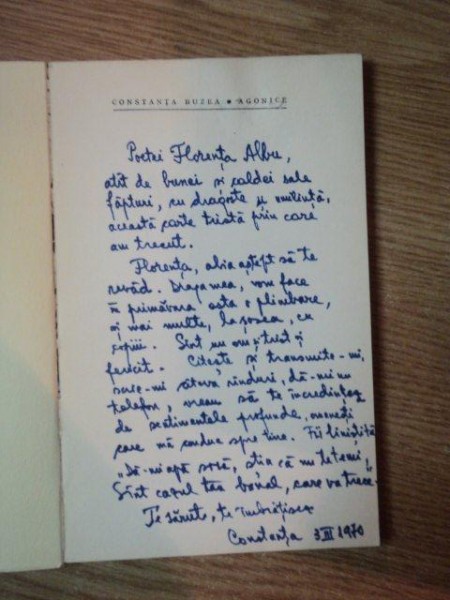 CONSTANȚA BUZEA • AGONICE
Poetei Florența Albu,
atît de bunei și caldei sale
făpturi, cu dragoste și umilință,
această carte tristă prin care
am trecut.
Florența, abia aștept să te
revăd. Draga mea, vom face
în primăvara asta o plimbare,
și mai multe, la șosea, cu
copiii. Sînt un om trist și
fericit. Citește și transmite-mi,
scrie-mi cîteva rînduri, dă-mi un
telefon, vreau să te încredințez
de sentimentele profunde, omenești
care mă conduc spre tine. Fii liniștită
„Dă-mi apă soră, știa că nu te temi,
Sînt calul tău bolnav, care va trece."
Te sărut, te îmbrățișez
Constanța 3 III 1970